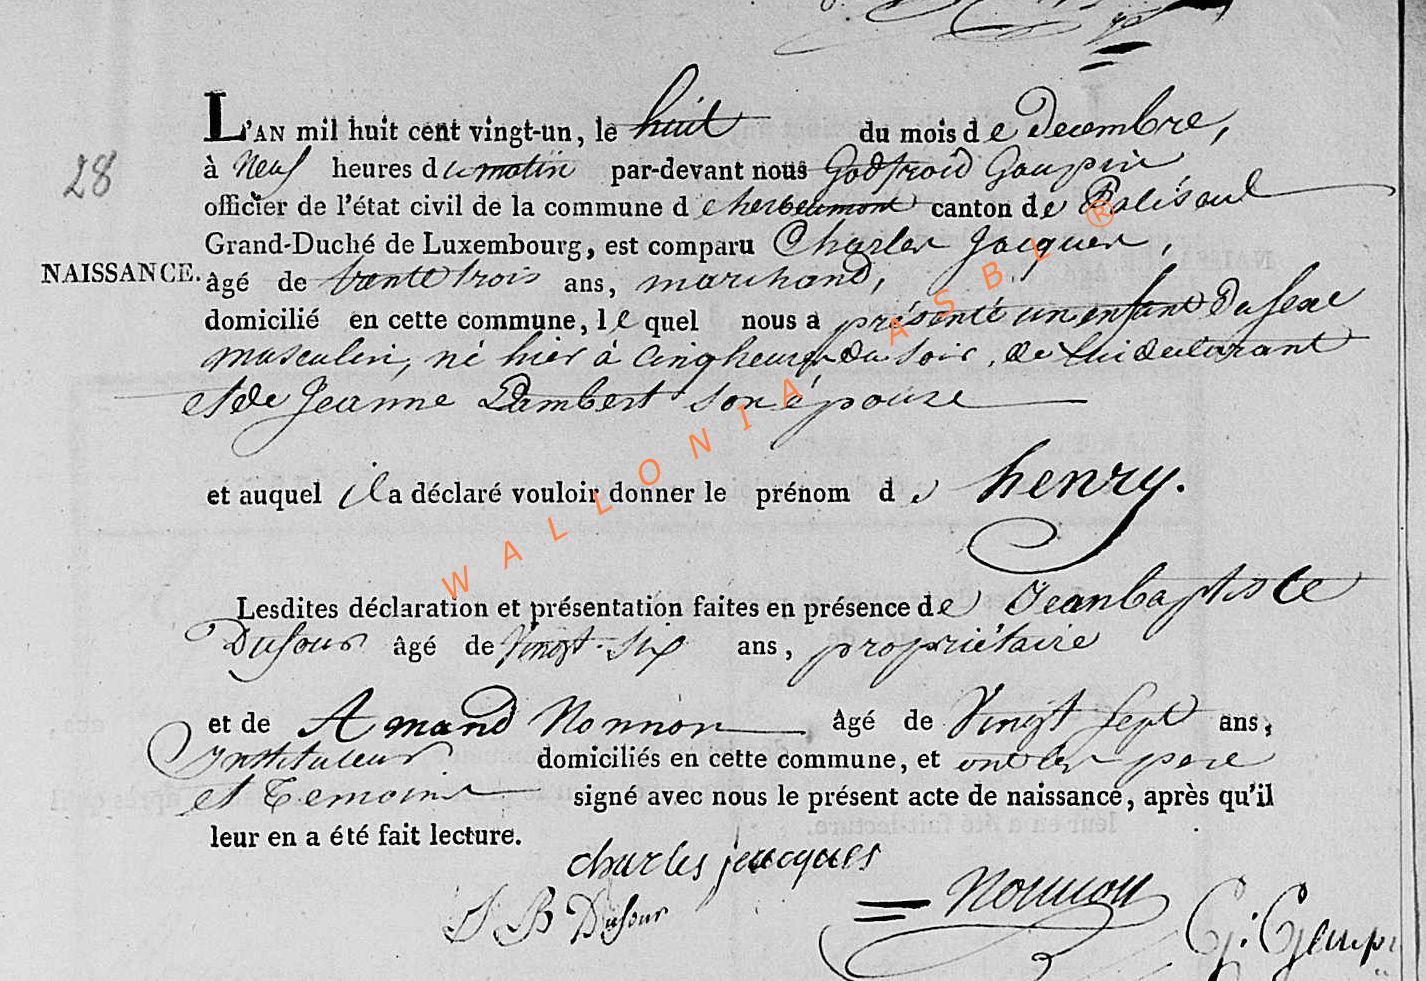 L'AN mil huit cent vingt-un, le huit du mois de Decembre,
28
à Neuf heures du matin par-devant nous Godfroid Goupin
officier de l'état civil de la commune d'herbeumont canton de Paliseul
Grand-Duché de Luxembourg, est comparu Charles Jacques,
NAISSANCE.
âgé de trente trois ans, marchand,
domicilié en cette commune, lequel nous a présenté un enfant Du sexe
masculin, né hier à cinq heures du soir, de lui declarant
et de Jeanne Lambert son épouse
et auquel il a déclaré vouloir donner le prénom de henry.
Lesdites déclaration et présentation faites en présence de Jean baptiste
Dufour âgé de Vingt-six ans, propriétaire
et de Amand Nonnon âgé de Vingt sept ans,
Instituteur domiciliés en cette commune, et ont les pere
et Temoins signé avec nous le présent acte de naissance, après qu'il
leur en a été fait lecture.
charles jacques
J B Dufour
Nonnon
G: G
WALLONIA ASBL ®